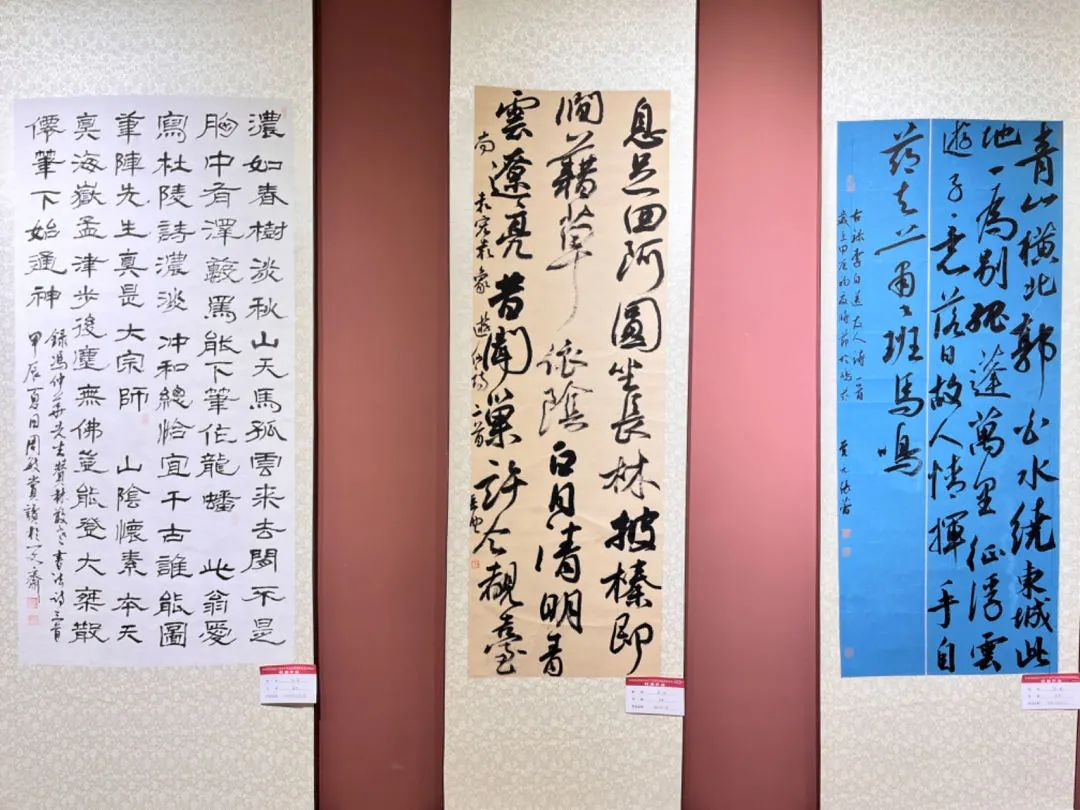 濃如春樹淡秋山天馬孤雲来去閒不是
胸中有澤藪焉能下筆作龍蟠 此翁愛
寫杜陵詩濃淡冲和總恰宜千古誰能圖
筆陣先生真是大宗師 山陰懷素本天
真海嶽孟津步後塵無佛豈能登大乘散
僊筆下始通神
録馮仲華先生贊林散之書法詩三首
甲辰夏日周敏
息足回阿圓坐長林披榛即
澗藉草依陰白日清明青
雲遼亮昔聞巢許今覩臺
尚
遊仙詩二首
青山横北郭白水繞東城此
地一為别孤蓬萬里征浮雲
遊子意落日故人情揮手自
兹去蕭々班馬鳴
李白送友人詩一首
歲在甲辰初夏